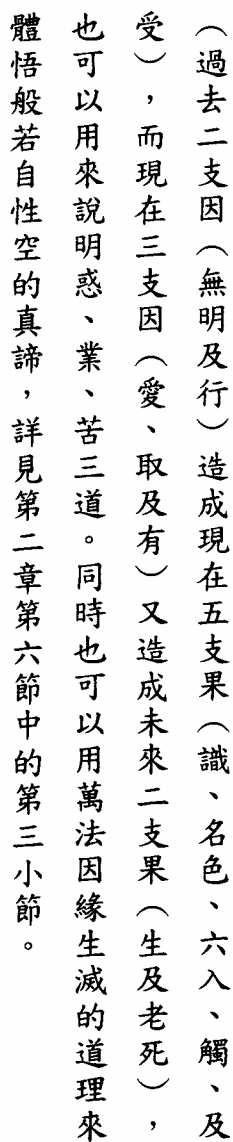 （過去二支因（無明及行）造成現在五支果（識、名色、六入、觸、及
受），而現在三支因（愛、取及有）又造成未來二支果（生及老死），
也可以用來說明惑、業、苦三道。同時也可以用萬法因緣生滅的道理來
體悟般若自性空的真諦，詳見第二章第六節中的第三小節。